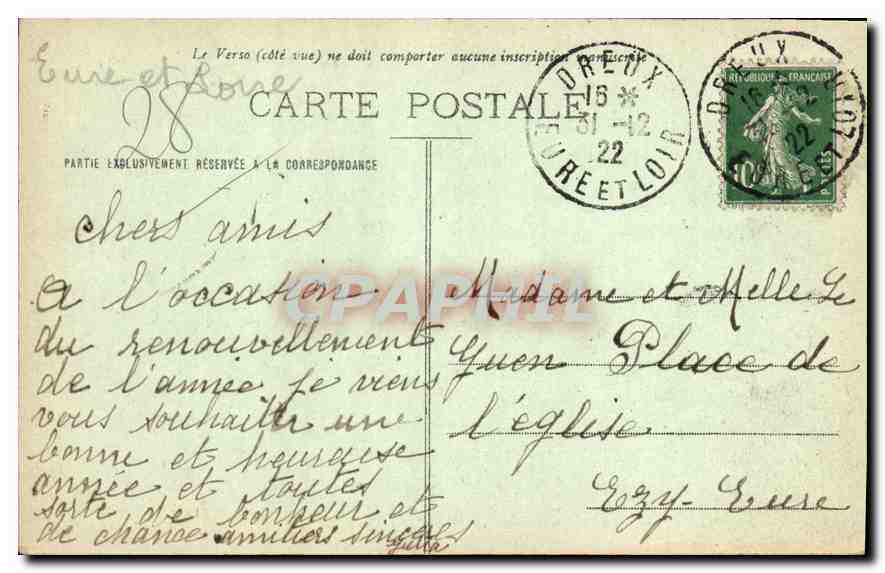 Le Verso (côté vue) ne doit comporter aucune inscription manuscrite
Eure et Loire
28
CARTE POSTALE
PARTIE EXCLUSIVEMENT RÉSERVÉE A LA CORRESPONDANCE
DREUX
16 *
31 -12
22
EURE ET LOIR
DREUX
16
12
22
EURE ET LOIR
RÉPUBLIQUE FRANÇAISE
10
chers amis
a l'occasion
du renouvellement
de l'année je viens
vous souhaiter une
bonne et heureuse
année et toutes
sorte de bonheur et
de chance amitiés sincères
Julia
Madame et Melle Le
Guen Place de
l'église
Ezy-Eure
CPAPHIL